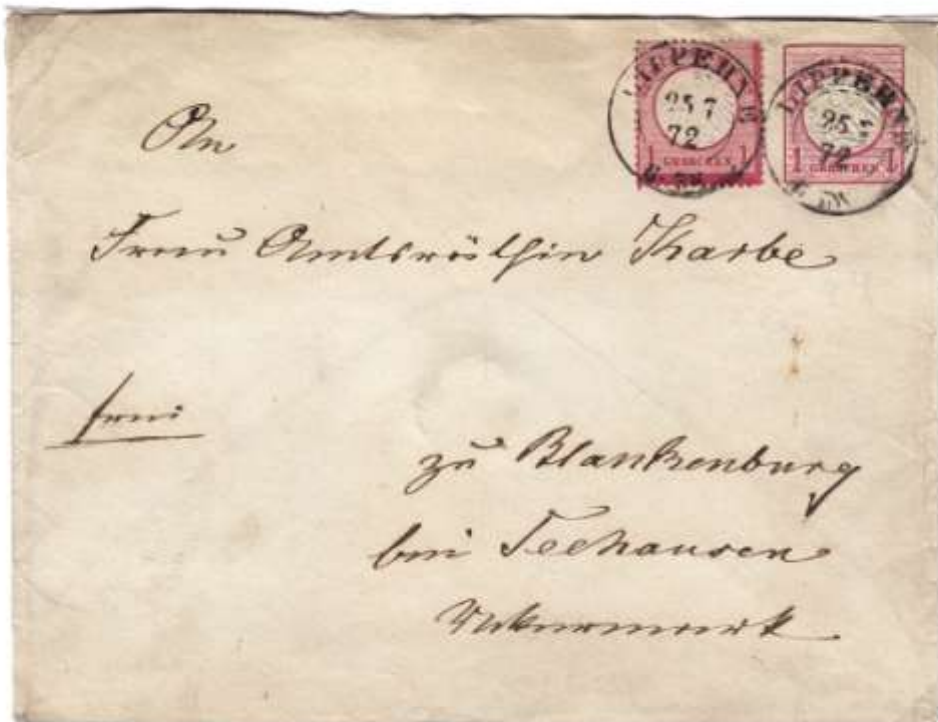 LIPPEHNE
25 7
72
1 GROSCHEN 1
LIPPEHNE
25
72
1 GROSCHEN 1
An
Frau Amtsräthin Karbe
frei
zu Blankenburg
bei Seehausen
Uckermark